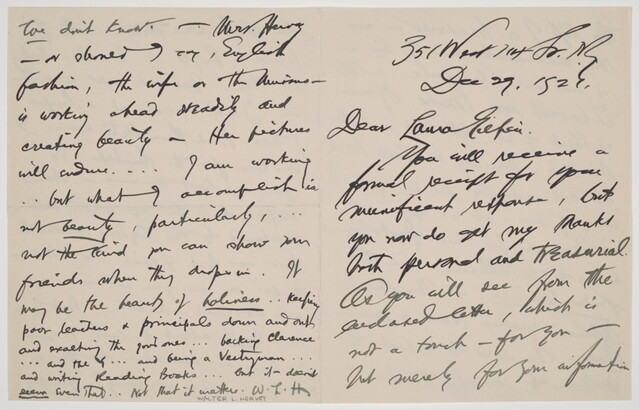 351 West 114 St. NY
Dec 29, 1927.
Dear Laura Gilpin.
You will receive a
formal receipt for your
munificent response, but
you now do get my thanks
both personal and treasurial.
As you will see from the
enclosed letter, which is
not a touch – for you –
but merely for your information
We don't know. — Mrs. Hervey
– or should I say, English
fashion, the wife or the
is working ahead steadily and
creating beauty – Her pictures
will endure.... I am working
.. but what I accomplish is
not beauty, particularly, ...
not the kind you can show your
friends when they drop in. It
may be the beauty of holiness .. keeping
poor leaders & principals down and out
and exalting the good ones... backing Clarence
... and the ... and being a Vestryman...
and writing Reading Books... but it doesn't
seem even that.. Not that it matters. W. L. H.
WALTER L. HERVEY